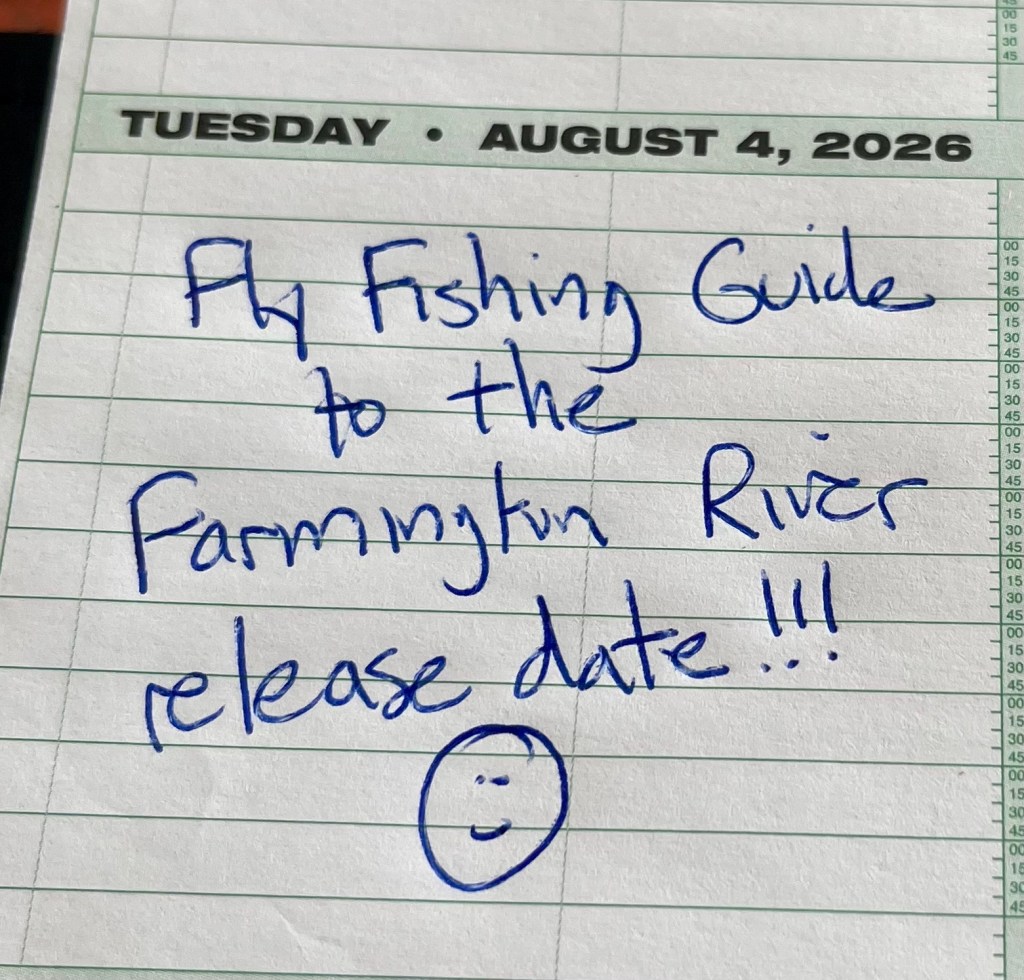 TUESDAY • AUGUST 4, 2026
Fly Fishing Guide
to the
Farmington River
release date!!!
00
15
30
45
00
15
30
45
00
15
30
45
00
15
30
45
00
15
30
45
00
15
30
45
00
15
30
45
00
15
30
45
00
15
30
45
00
15
30
45
00
15
30
45
00
15
30
45